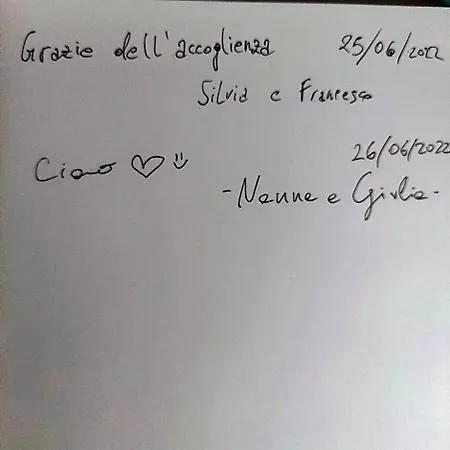 Grazie dell'accoglienza 25/06/2022
Silvia e Francesco
26/06/2022
Ciao ♡ :)
-Nanna e Giulia-